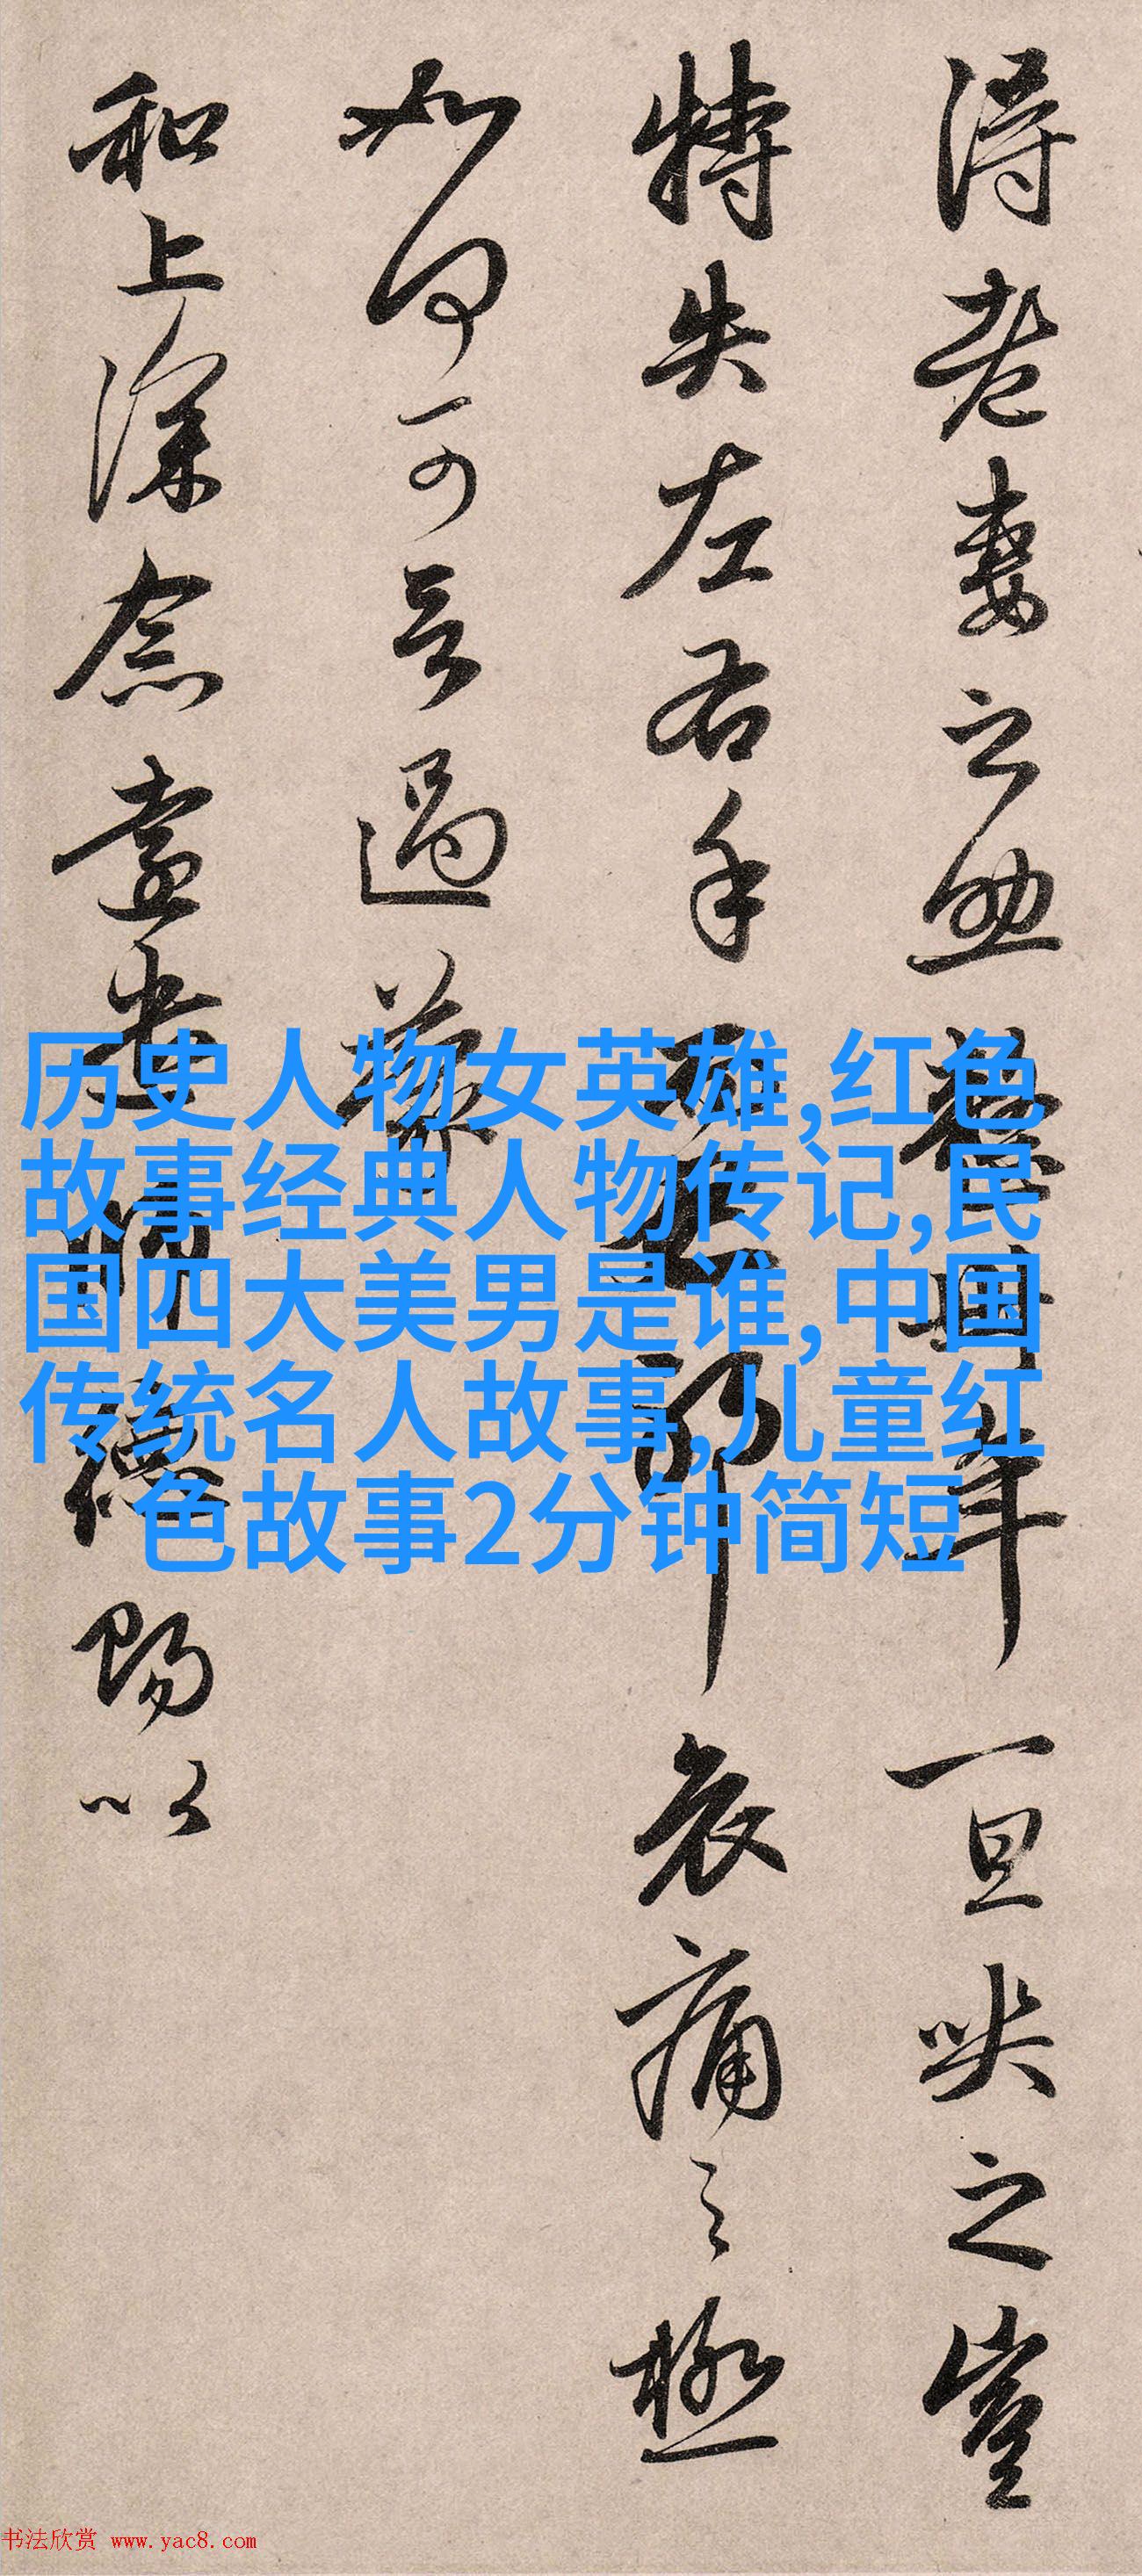 得老妻之助整卅年一旦哭之豈
特失左右手而已耶哀痛之極
如何可言過蒙
和上深念遠遣師德賜以
历史人物女英雄,红色
故事经典人物传记,民
国四大美男是谁,中国
传统名人故事,儿童红
色故事2分钟简短
书法欣赏 www.yac8.com